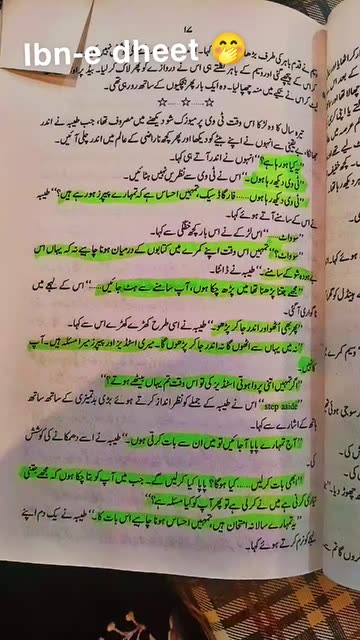 Ibn-e dheet 🤭
۱۷
وسیم نے قدم باہر کی طرف بڑھا
کہا۔
کر اس کے پیچھے گئی اور وسیم کے باہر نکلتے ہی اس نے دروازے کو پھر لاک کر لیا۔ بیڈ پر اوندھے
لیٹ کر اس نے تکیے میں منہ چھپا لیا۔ وہ ایک بار پھر ہچکیوں کے ساتھ رو رہی تھی۔
☆.....☆.....☆
تیرہ سال کا وہ لڑکا اس وقت ٹی وی پر میوزک شو دیکھنے میں مصروف تھا، جب طیبہ نے اندر
جھانکا۔ بے یقینی سے انہوں نے اپنے بیٹے کو دیکھا اور پھر کچھ ناراضی کے عالم میں اندر چلی آئیں۔
"یہ کیا ہو رہا ہے؟" انہوں نے اندر آتے ہی کہا۔
"ٹی وی دیکھ رہا ہوں۔" اس نے ٹی وی سے نظریں نہیں ہٹائیں۔
"ٹی وی دیکھ رہا ہوں..... فار گاڈ سیک۔ تمہیں احساس ہے کہ تمہارے پیپرز ہو رہے ہیں؟" طیبہ
نے اس کے سامنے آتے ہوئے کہا۔
"سو واٹ....." اس لڑکے نے اس بار کچھ خفگی سے کہا۔
"سو واٹ؟ تمہیں اس وقت اپنے کمرے میں کتابوں کے درمیان ہونا چاہیے نہ کہ یہاں اس
بے ہودہ شو کے سامنے۔" طیبہ نے ڈانٹا۔
"مجھے جتنا پڑھنا تھا میں پڑھ چکا ہوں، آپ سامنے سے ہٹ جائیں....." اس کے لہجے میں
ناگواری آ گئی۔
"پھر بھی اٹھو اور اندر جا کر پڑھو۔" طیبہ نے اسی طرح کھڑے کھڑے اس سے کہا۔
"نہ میں یہاں سے اٹھوں گا نہ اندر جا کر پڑھوں گا۔ میری اسٹڈیز اور پیپرز میرا مسئلہ ہیں۔ آپ
کا نہیں۔"
"اگر تمہیں اتنی پروا ہوتی اسٹڈیز کی تو اس وقت تم یہاں بیٹھے ہوتے؟"
"step aside" اس نے طیبہ کے جملے کو نظر انداز کرتے ہوئے بڑی بدتمیزی کے ساتھ ساتھ
ہاتھ کے اشارے سے کہا۔
"آج تمہارے پاپا آ جائیں تو میں ان سے بات کرتی ہوں۔" طیبہ نے اسے دھمکانے کی کوشش
کی۔
"ابھی بات کر لیں..... کیا ہوگا؟ پاپا کیا کر لیں گے۔ جب میں آپ کو بتا چکا ہوں کہ مجھے جتنی
تیاری کرنی ہے میں نے کر لی ہے تو پھر آپ کو کیا مسئلہ ہے؟"
"یہ تمہارے سالانہ امتحان ہیں، تمہیں احساس ہونا چاہیے اس بات کا۔" طیبہ نے یک دم اپنے
لہجے کو نرم کرتے ہوئے کہا۔